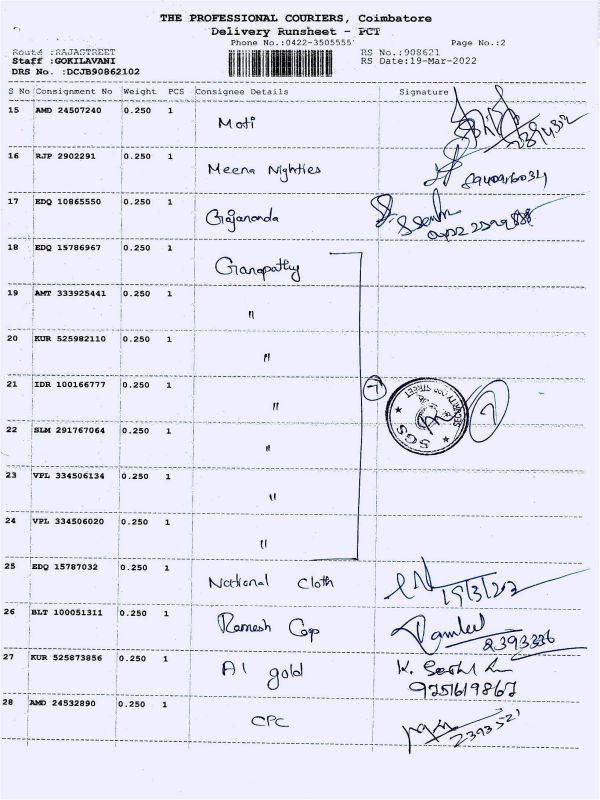 THE PROFESSIONAL COURIERS, Coimbatore
Delivery Runsheet - PCT
Phone No.:0422-3505555 Page No.:2
Route :RAJASTREET RS No.:908621
Staff :GOKILAVANI RS Date:19-Mar-2022
DRS No. :DCJB90862102
S No Consignment No Weight PCS Consignee Details Signature
15 AMD 24507240 0.250 1 Moti
16 RJP 2902291 0.250 1 Meena Nighties
17 EDQ 10865550 0.250 1 Gajananda
18 EDQ 15786967 0.250 1 Ganapathy
19 AMT 333925441 0.250 1 "
20 KUR 525982110 0.250 1 "
21 IDR 100166777 0.250 1 " 7 7
SGS
22 SLM 291767064 0.250 1 "
23 VPL 334506134 0.250 1 "
24 VPL 334506020 0.250 1 "
25 EDQ 15787032 0.250 1 National Cloth
26 BLT 100051311 0.250 1 Ramesh Cop
2393336
27 KUR 525873856 0.250 1 A1 gold
9751619867
28 AMD 24532890 0.250 1 CPC
2393521